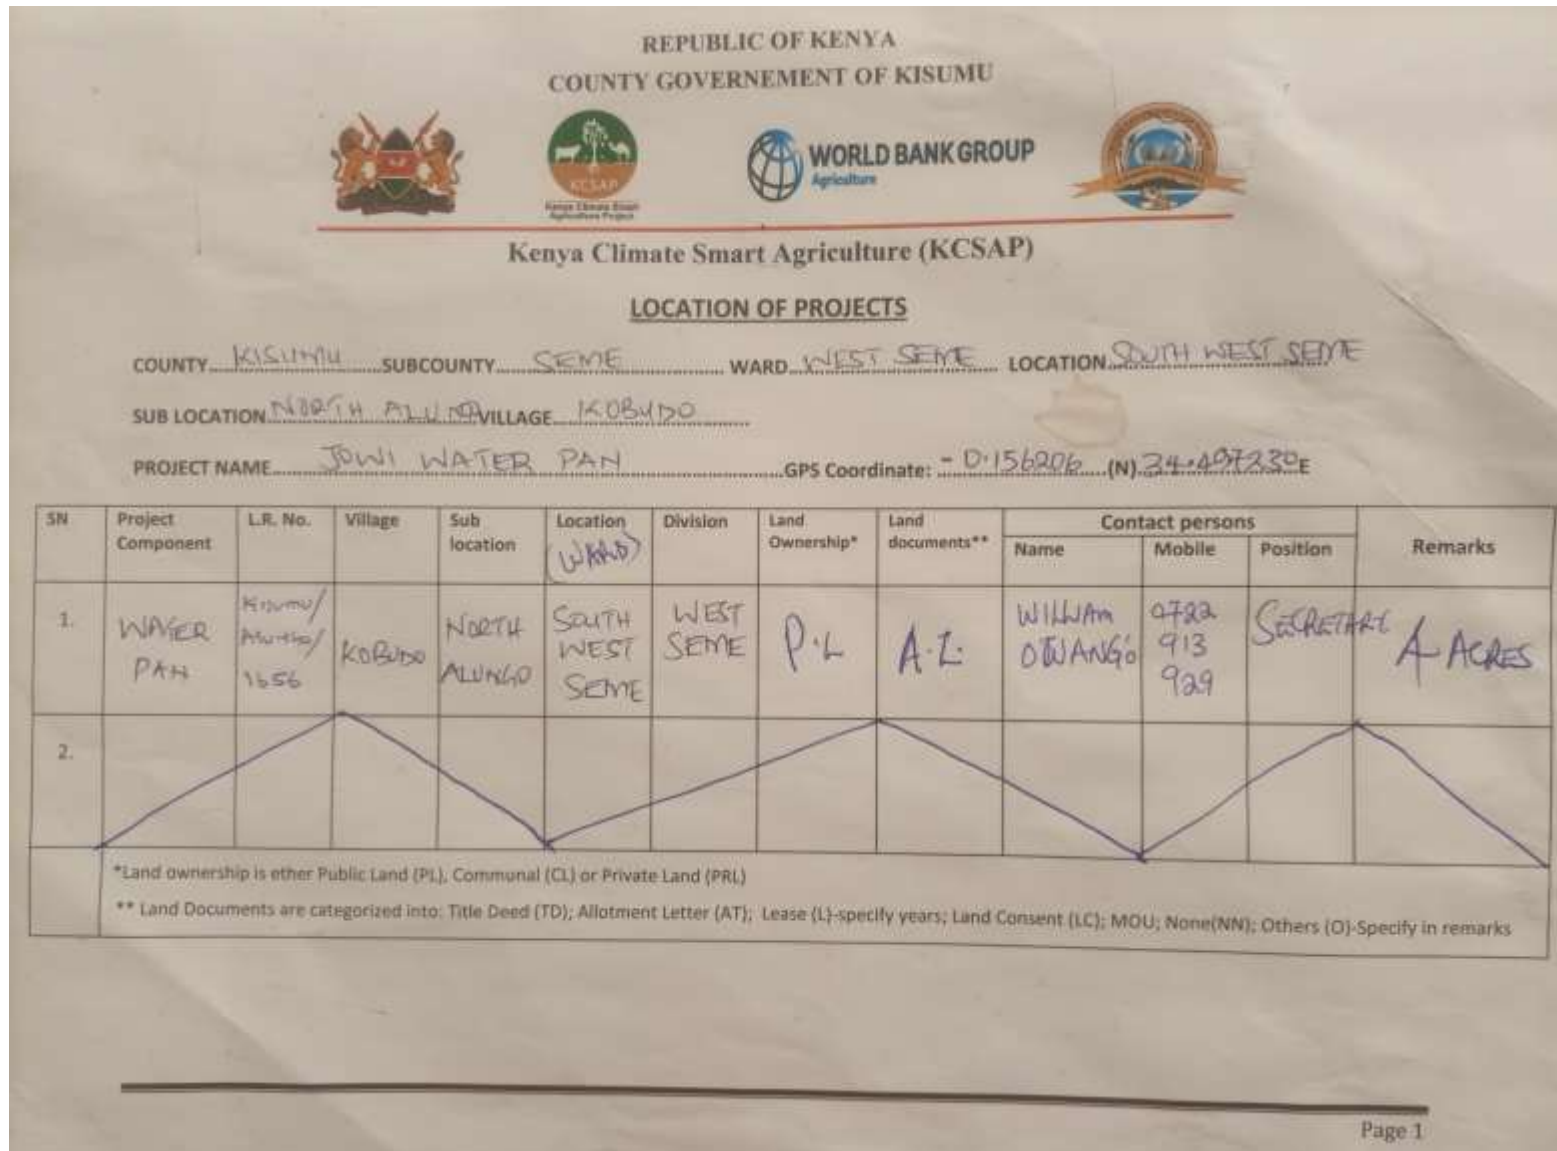 REPUBLIC OF KENYA
COUNTY GOVERNEMENT OF KISUMU
KCSAP
Kenya Climate Smart
Agriculture Project
WORLD BANK GROUP
Agriculture
Kenya Climate Smart Agriculture (KCSAP)
LOCATION OF PROJECTS
COUNTY KISUMU SUBCOUNTY SEME WARD WEST SEME LOCATION SOUTH WEST SEME
SUB LOCATION NORTH VILLAGE KOBUDO
PROJECT NAME JOWI WATER PAN GPS Coordinate: -0.156206 (N) 34.497230E
SN Project Component L.R. No. Village Sub location Location (WARD) Division Land Ownership* Land documents** Contact persons Remarks
Name Mobile Position
1. WATER PAN Kisumu/ 1656 KOBUDO NORTH ALUNGO SOUTH WEST SEME WEST SEME P.L A.L. WILLIAM OWANGO 0722 913 929 SECRETARY 4 ACRES
2.
*Land ownership is ether Public Land (PL), Communal (CL) or Private Land (PRL)
** Land Documents are categorized into: Title Deed (TD); Allotment Letter (AT); Lease (L)-specify years; Land Consent (LC); MOU; None(NN); Others (O)-Specify in remarks
Page 1